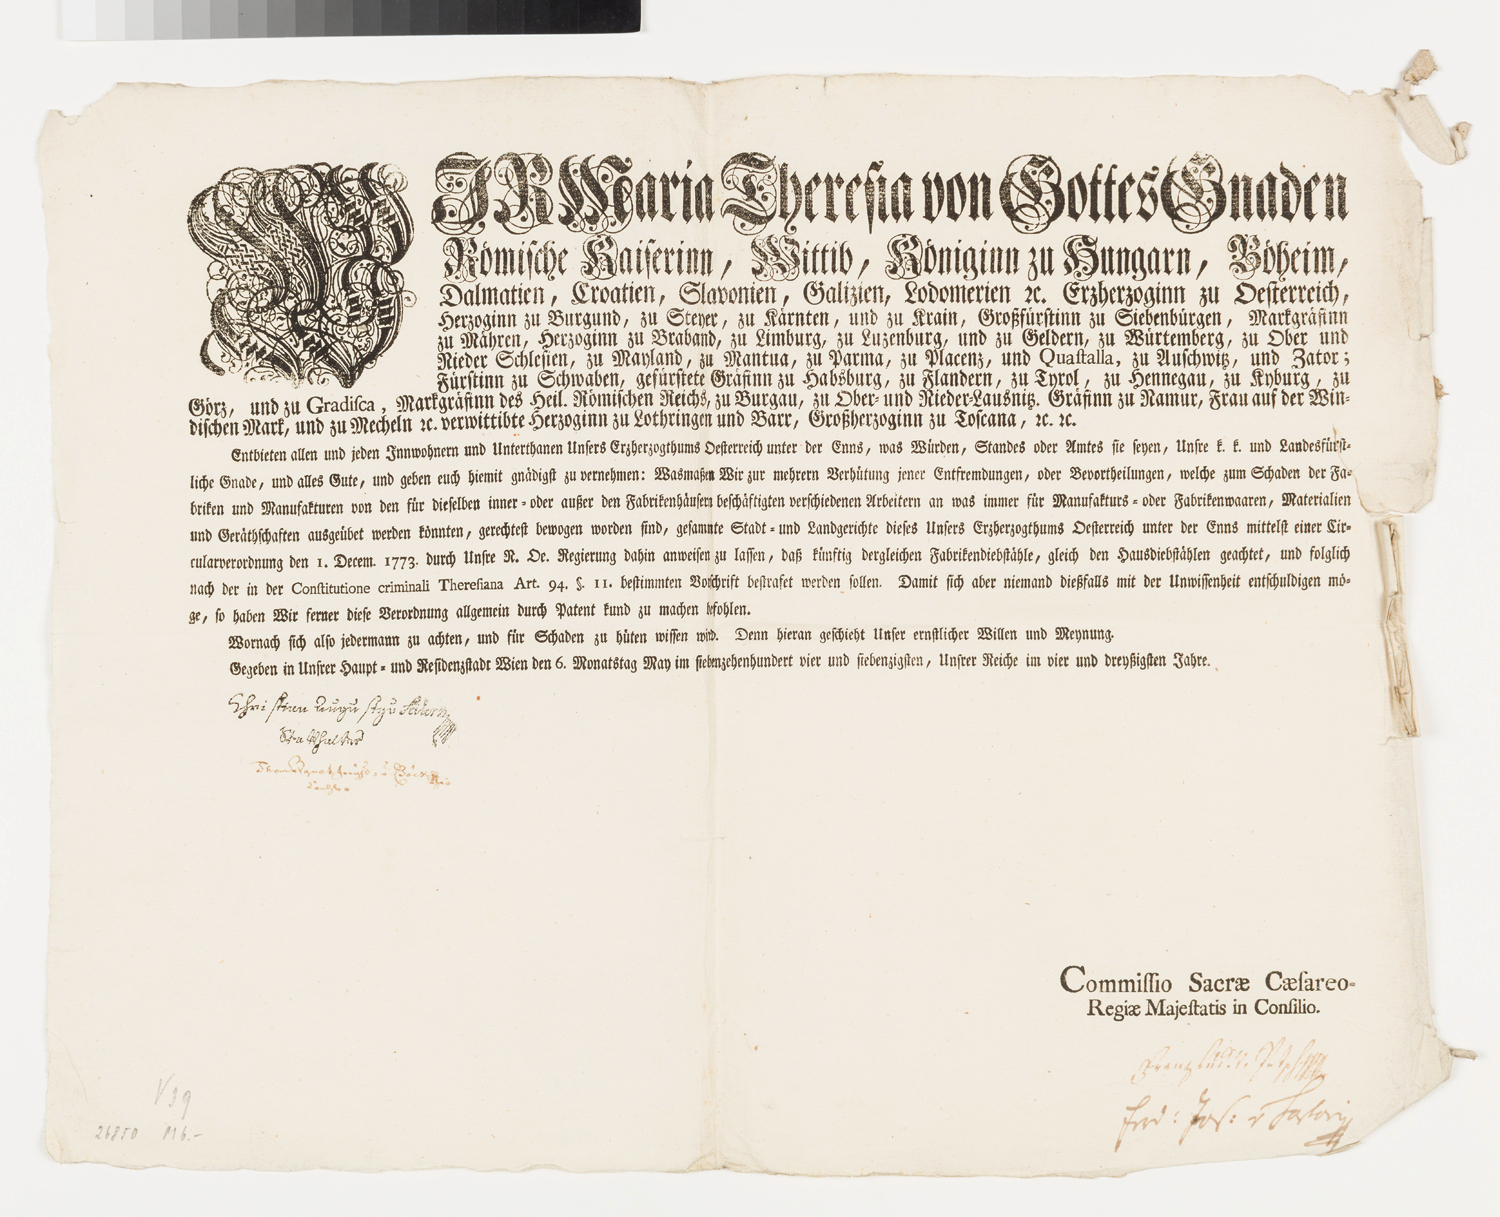 WJR Maria Theresia von Gottes Gnaden
Römische Kaiserinn, Wittib, Königinn zu Hungarn, Böheim,
Dalmatien, Croatien, Slavonien, Galizien, Lodomerien ꝛc. Erzherzoginn zu Oesterreich,
Herzoginn zu Burgund, zu Steyer, zu Kärnten, und zu Krain, Großfürstinn zu Siebenbürgen, Markgräfinn
zu Mähren, Herzoginn zu Braband, zu Limburg, zu Luzenburg, und zu Geldern, zu Würtemberg, zu Ober und
Nieder Schlesien, zu Mayland, zu Mantua, zu Parma, zu Placenz, und Quastalla, zu Auschwitz, und Zator;
Fürstinn zu Schwaben, gefürstete Gräfinn zu Habsburg, zu Flandern, zu Tyrol, zu Hennegau, zu Kyburg, zu
Görz, und zu Gradisca, Markgräfinn des Heil. Römischen Reichs, zu Burgau, zu Ober- und Nieder-Lausnitz. Gräfinn zu Namur, Frau auf der Win-
dischen Mark, und zu Mecheln ꝛc. verwittibte Herzoginn zu Lothringen und Barr, Großherzoginn zu Toscana, ꝛc. ꝛc.
Entbieten allen und jeden Innwohnern und Unterthanen Unsers Erzherzogthums Oesterreich unter der Enns, was Würden, Standes oder Amtes sie seyen, Unsre k. k. und Landesfürst-
liche Gnade, und alles Gute, und geben euch hiemit gnädigst zu vernehmen: Wasmaßen Wir zur mehrern Verhütung jener Entfremdungen, oder Bevortheilungen, welche zum Schaden der Fa-
briken und Manufakturen von den für dieselben inner- oder außer den Fabrikenhäusern beschäftigten verschiedenen Arbeitern an was immer für Manufakturs- oder Fabrikenwaaren, Materialien
und Geräthschaften ausgeübet werden könnten, gerechtest bewogen worden sind, gesamnte Stadt- und Landgerichte dieses Unsers Erzherzogthums Oesterreich unter der Enns mittelst einer Cir-
cularverordnung den 1. Decem. 1773. durch Unsre N. Oe. Regierung dahin anweisen zu lassen, daß künftig dergleichen Fabrikendiebstähle, gleich den Hausdiebstählen geachtet, und folglich
nach der in der Constitutione criminali Theresiana Art. 94. §. 11. bestimmten Vorschrift bestrafet werden sollen. Damit sich aber niemand dießfalls mit der Unwissenheit entschuldigen mö-
ge, so haben Wir ferner diese Verordnung allgemein durch Patent kund zu machen befohlen.
Wornach sich also jedermann zu achten, und für Schaden zu hüten wissen wird. Denn hieran geschieht Unser ernstlicher Willen und Meynung.
Gegeben in Unsrer Haupt- und Residenzstadt Wien den 6. Monatstag May im siebenzehenhundert vier und siebenzigsten, Unsrer Reiche im vier und dreyßigsten Jahre.
Christian August
Statthalter
Commissio Sacræ Cæsareo-
Regiæ Majestatis in Consilio.
Ferd: Jos: v
V39
26850 M6.-